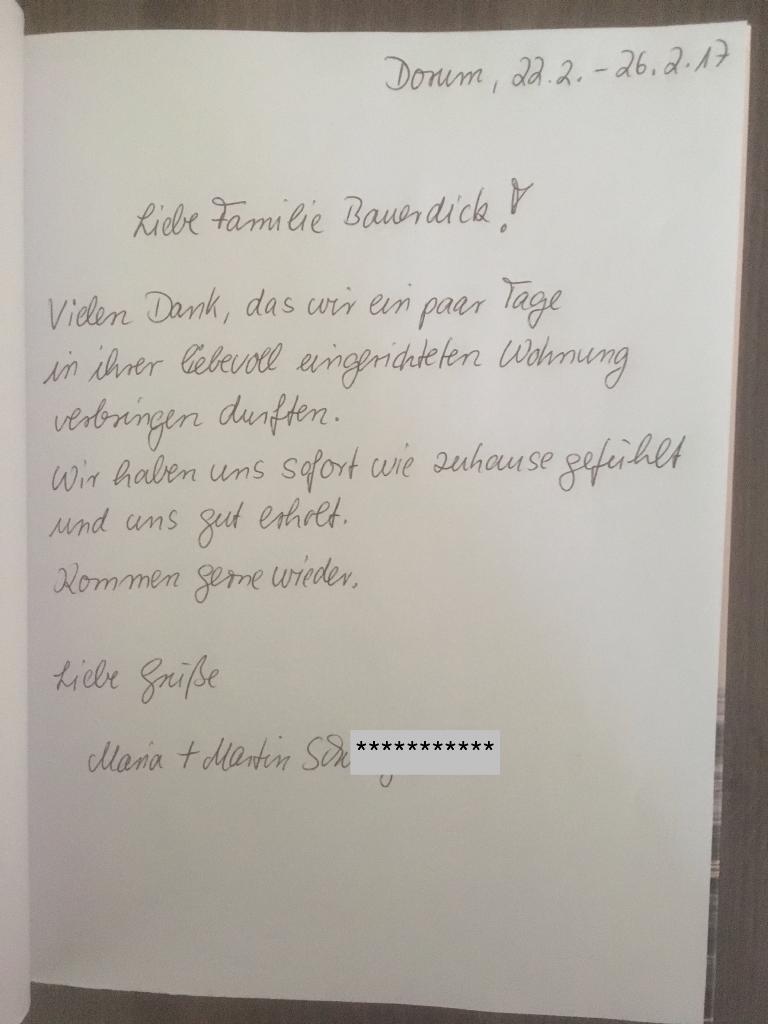 Dorum, 22.2. - 26.2.17
Liebe Familie Bauerdick!
Vielen Dank, das wir ein paar Tage
in ihrer liebevoll eingerichteten Wohnung
verbringen durften.
Wir haben uns sofort wie zuhause gefühlt
und uns gut erholt.
Kommen gerne wieder.
Liebe Grüße
Maria + Martin ***********